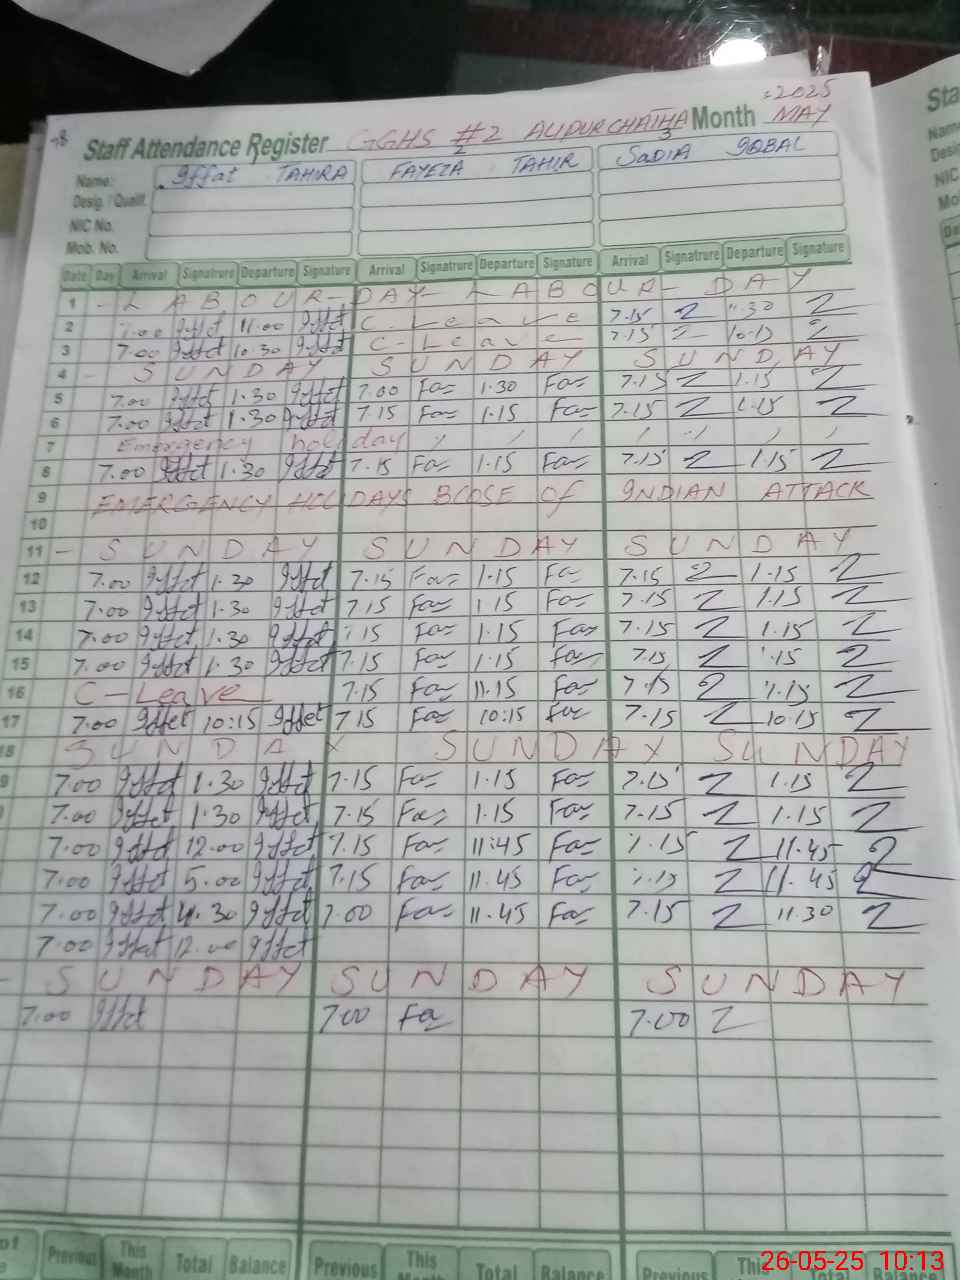 :2025
Staff Attendance Register GGHS #2 ALIPURCHATHA Month MAY
2 3
Name: Iffat TAHIRA FAYEZA TAHIR SADIA IQBAL
Desig. / Qualif.
NIC No.
Mob. No.
Date Day Arrival Signatrure Departure Signature Arrival Signatrure Departure Signature Arrival Signatrure Departure Signature
1 - LABOUR - DAY - LABOUR - DAY
2 7.00 Iffat 11.00 Iffat C. Leave 7.15 Z 11.30 Z
3 7.00 Iffat 10.30 Iffat C-Leave 7.15 Z 10.15 Z
4 - SUNDAY SUNDAY SUNDAY
5 7.00 Iffat 1.30 Iffat 7.00 Faz 1.30 Faz 7.15 Z 1.15 Z
6 7.00 Iffat 1.30 Iffat 7.15 Faz 1.15 Faz 7.15 Z 1.15 Z
7 Emergency holiday , , , , , , ,
8 7.00 Iffat 1.30 Iffat 7.15 Faz 1.15 Faz 7.15 Z 1.15 Z
9 EMERGENCY HOLIDAYS BCOSE OF INDIAN ATTACK
10
11 - SUNDAY SUNDAY SUNDAY
12 7.00 Iffat 1.30 Iffat 7.15 Faz 1.15 Faz 7.15 Z 1.15 Z
13 7.00 Iffat 1.30 Iffat 7.15 Faz 1 15 Faz 7.15 Z 1.15 Z
14 7.00 Iffat 1.30 Iffat 7.15 Faz 1.15 Faz 7.15 Z 1.15 Z
15 7.00 Iffat 1.30 Iffat 7.15 Faz 1.15 Faz 7.15 Z 1.15 Z
16 C-Leave 7.15 Faz 11.15 Faz 7.15 Z 1.15 Z
17 7.00 Iffat 10:15 Iffat 7.15 Faz 10:15 Faz 7.15 Z 10.15 Z
18 SUNDAY SUNDAY SUNDAY
9 7.00 Iffat 1.30 Iffat 7.15 Faz 1.15 Faz 7.15 Z 1.15 Z
7.00 Iffat 1.30 Iffat 7.15 Faz 1.15 Faz 7.15 Z 1.15 Z
7.00 Iffat 12.00 Iffat 7.15 Faz 11:45 Faz 7.15 Z 11.45 Z
7.00 Iffat 5.00 Iffat 7.15 Faz 11.45 Faz 7.15 Z 11.45 Z
7.00 Iffat 11.30 Iffat 7.00 Faz 11.45 Faz 7.15 Z 11.30 Z
7.00 Iffat 12.00 Iffat
- SUNDAY SUNDAY SUNDAY
7.00 Iffat 7.00 Fa 7.00 Z
Previous This Month Total Balance Previous This Month Total Balance Previous This Total Balance
26-05-25 10:13
Sta
Name
Desi
NIC